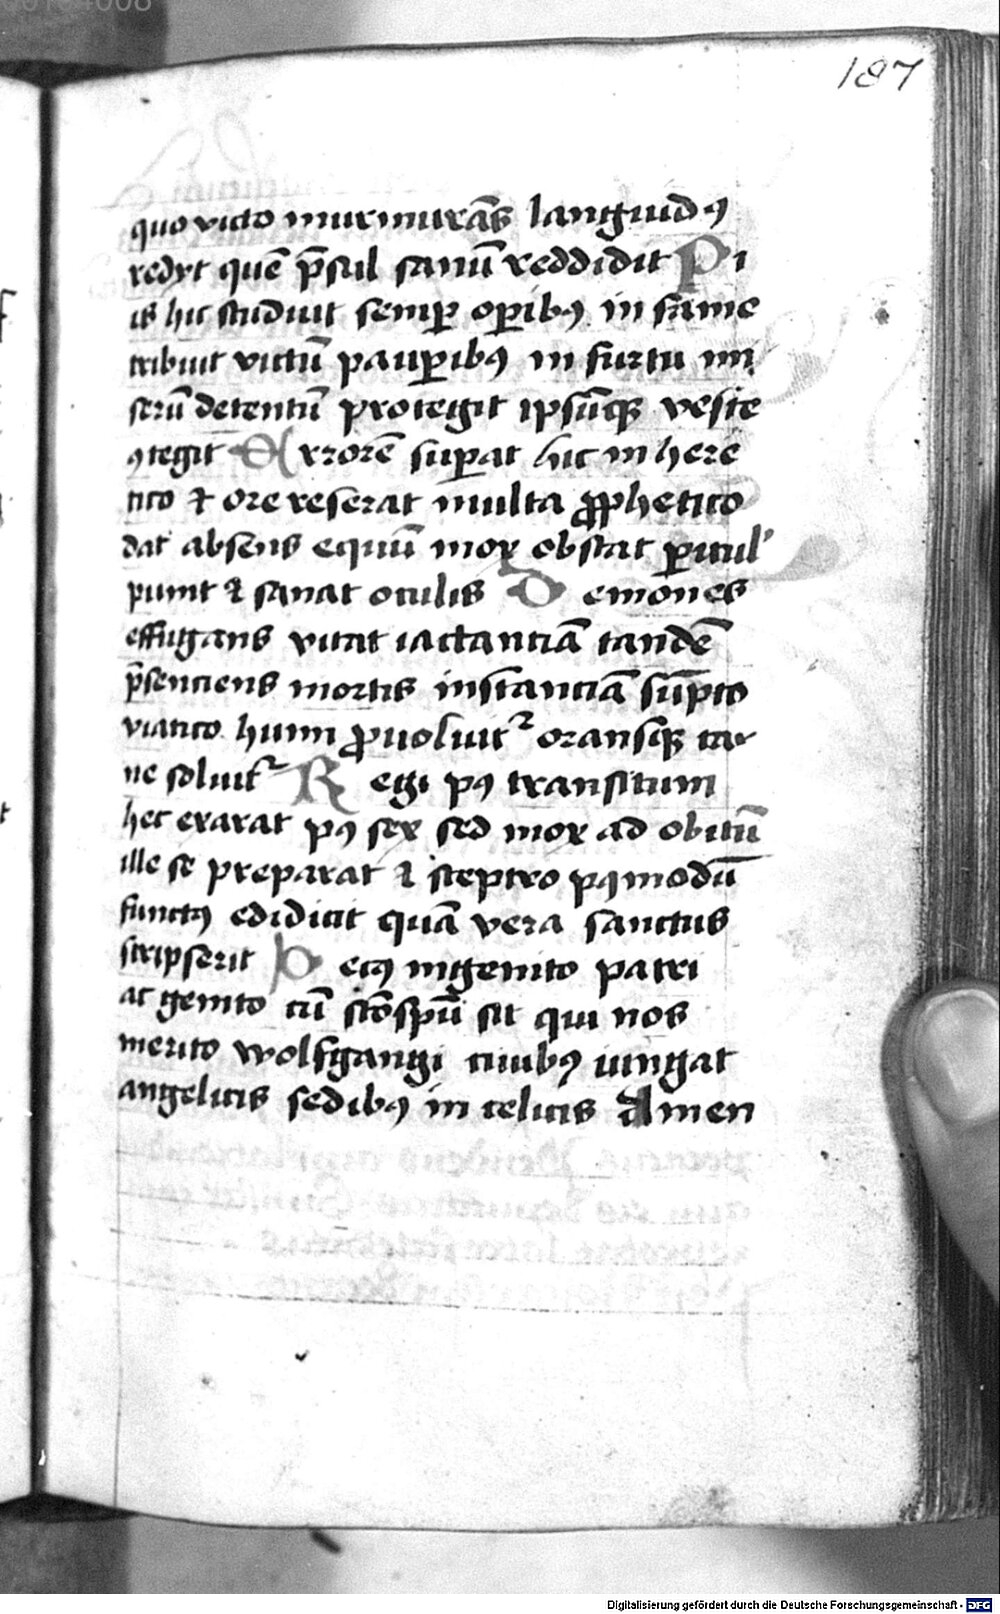 187
quo victo murmurās languidꝯ
redyt quē p̄sul sanū reddidit Pi
is hic studuit semꝑ oꝑibꝯ in fame
tribuit victū pauꝑibꝯ in furtu mi
serū detentū protegit ipsūqꝫ veste
ꝯtegit Errorē suꝑat hic in here
tico ⁊ ore reserat multa ꝓphetico
dat absens equū mox obstat ꝑicul'
punit ⁊ sanat oculis Demones
effugans vitat iactantiā tandē
p̄senciens mortis instanciā sūpto
viatico humi ꝓuoluit᷑ oransqꝫ car
ne soluit᷑ Regi pꝯ transitum
hec exarat pꝯ sex sed mox ad obitū
ille se preparat ⁊ sceptro pꝯmodū
functꝯ edidicit quā vera sanctus
scripserit Decꝯ ingenito patri
ac genito cū sc̄o spū sit qui nos
merito wolfgangi ciuibꝯ iungat
angelicis sedibꝯ in celicis Amen
Digitalisierung gefördert durch die Deutsche Forschungsgemeinschaft - DFG